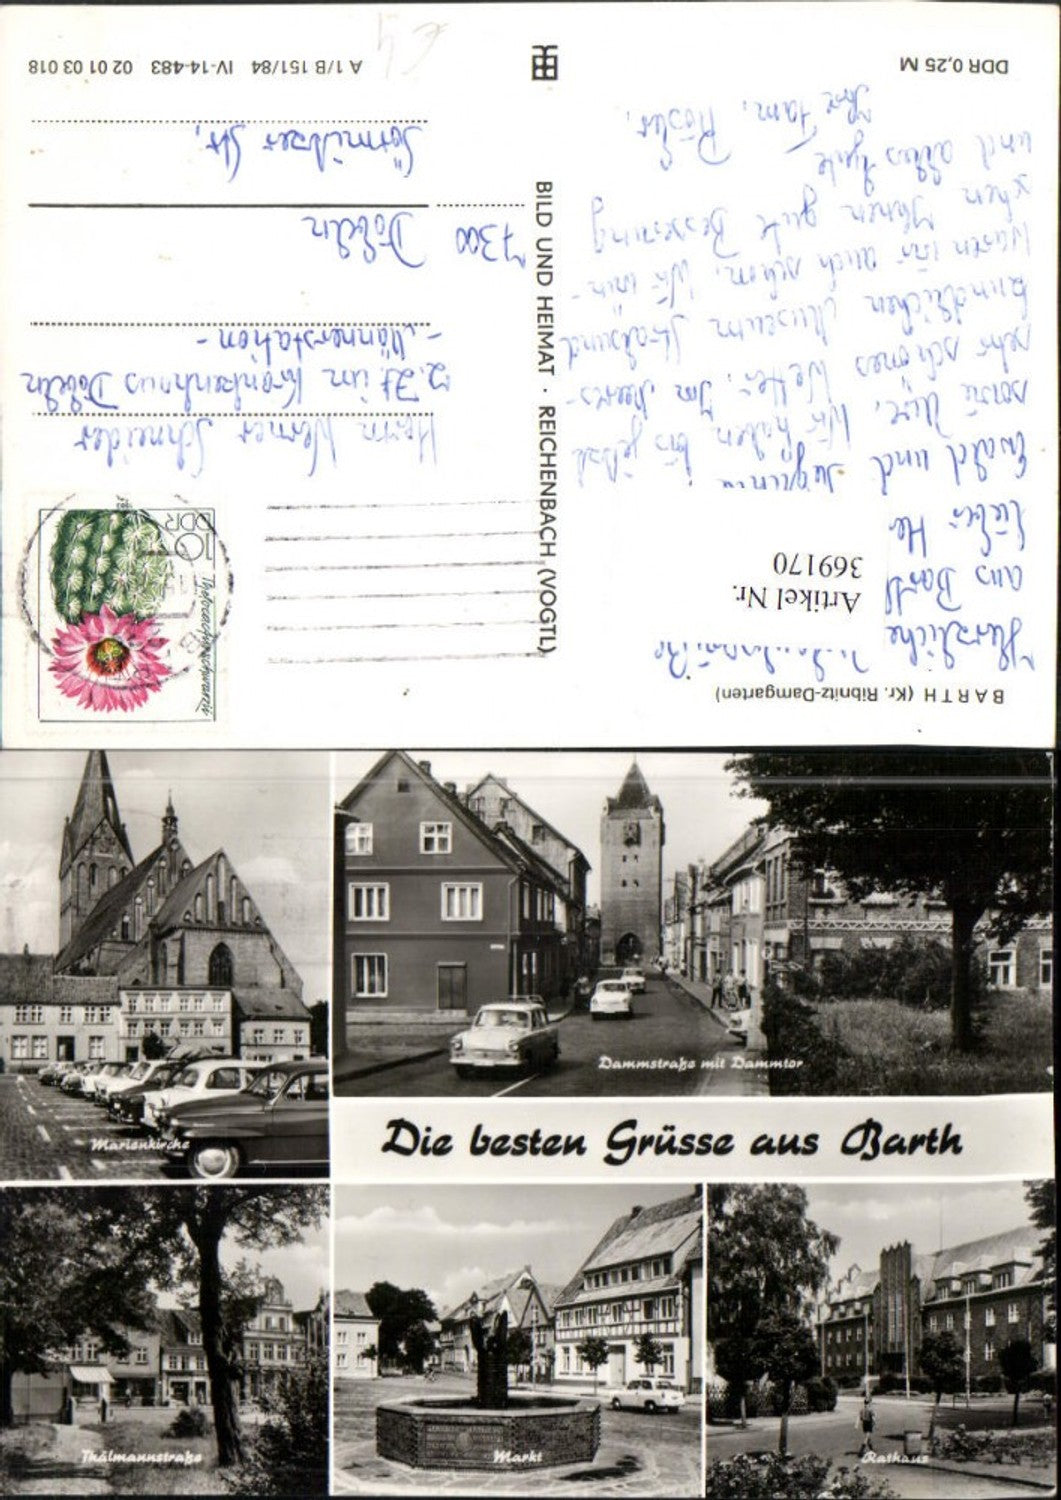 BARTH (Kr. Ribnitz-Damgarten)
Herzliche
aus Barth
Lieber He
Artikel Nr.
369170
Ewald und
sowie Ihre, Wir haben bis jetzt
sehr schönes Wetter. Im Meeres-
kundlichen Museum Stralsund
waren wir auch schon. Wir wün-
schen Ihnen gute Besserung
und alles Gute
Ihre Fam. Rösler.
DDR 0,25 M
BILD UND HEIMAT · REICHENBACH (VOGTL)
DDR
10
Herrn Werner Schneider
z. Zt im Krankenhaus Döbeln
- Männerstation -
7300 Döbeln
Sörmitzer Str.
A 1/B 151/84 IV-14-483 02 01 03 018
Marienkirche
Dammstraße mit Dammtor
Die besten Grüsse aus Barth
Thälmannstraße
Markt
Rathaus